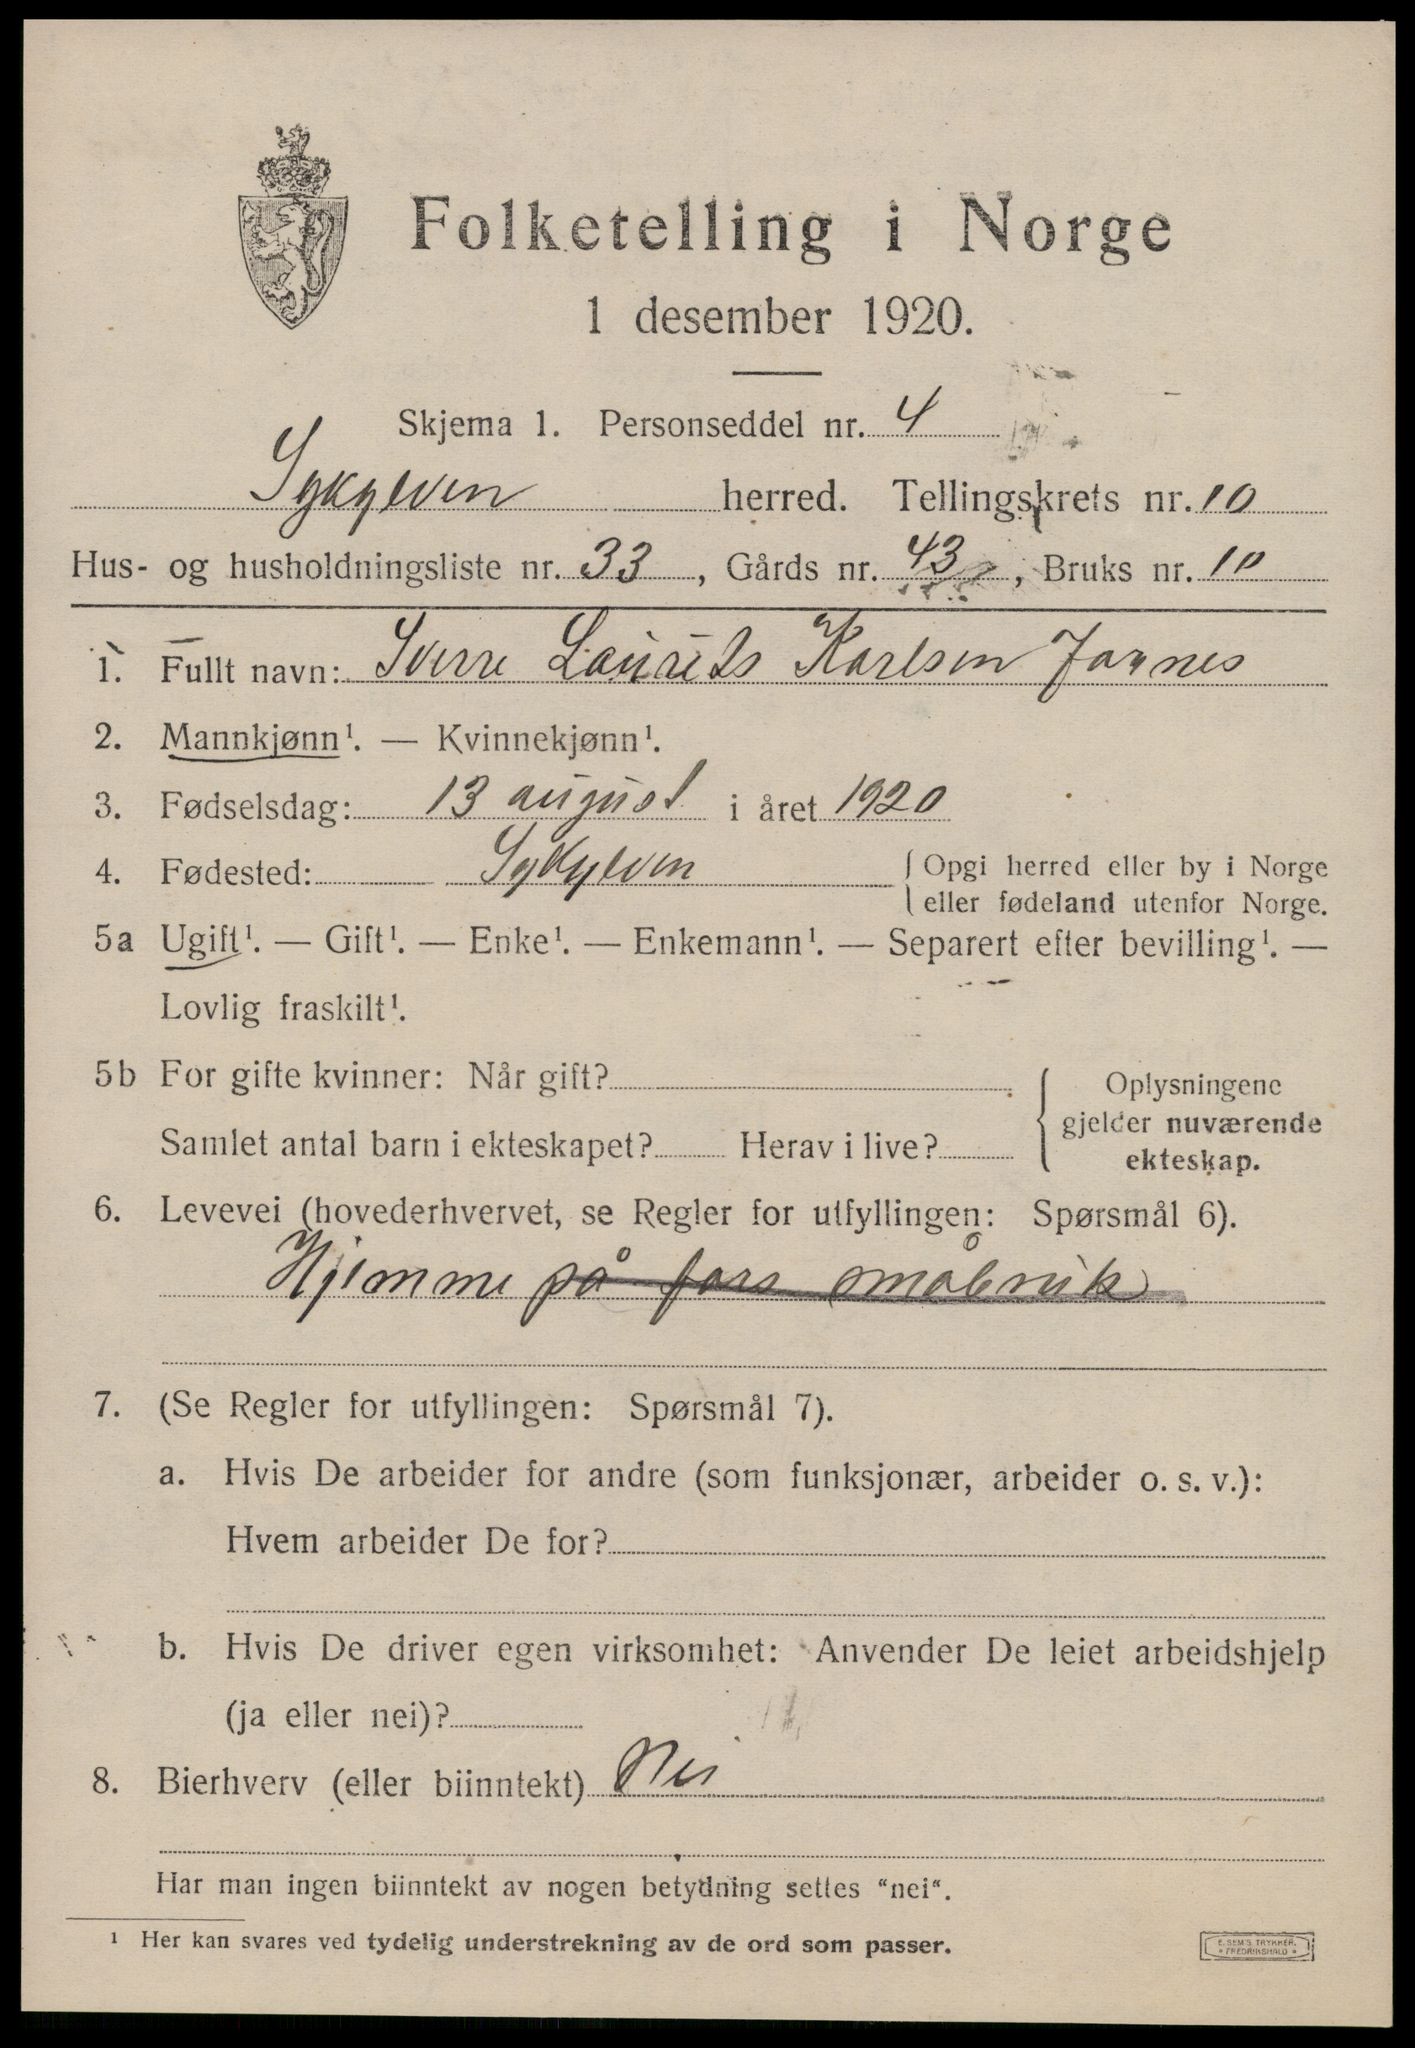 Folketelling i Norge
1 desember 1920.
Skjema 1. Personseddel nr. 4
Sykylven herred. Tellingskrets nr. 10
Hus- og husholdningsliste nr. 33, Gårds nr. 43, Bruks nr. 10
1. Fullt navn: Sverre Laurits Karlsen Jarnes
2. Mannkjønn¹. — Kvinnekjønn¹.
3. Fødselsdag: 13 august i året 1920
4. Fødested: Sykylven { Opgi herred eller by i Norge
eller fødeland utenfor Norge.
5a Ugift¹. — Gift¹. — Enke¹. — Enkemann¹. — Separert efter bevilling¹. —
Lovlig fraskilt¹.
5b For gifte kvinner: Når gift?
Samlet antal barn i ekteskapet? Herav i live?
Oplysningene
gjelder nuværende
ekteskap.
6. Levevei (hovederhvervet, se Regler for utfyllingen: Spørsmål 6).
Hjemme på fars småbruk
7. (Se Regler for utfyllingen: Spørsmål 7).
a. Hvis De arbeider for andre (som funksjonær, arbeider o. s. v.):
Hvem arbeider De for?
b. Hvis De driver egen virksomhet: Anvender De leiet arbeidshjelp
(ja eller nei)?
8. Bierhverv (eller biinntekt) Nei
Har man ingen biinntekt av nogen betydning settes "nei".
¹ Her kan svares ved tydelig understrekning av de ord som passer.
E. SEM'S TRYKKERI.
* FREDRIKSHALD *